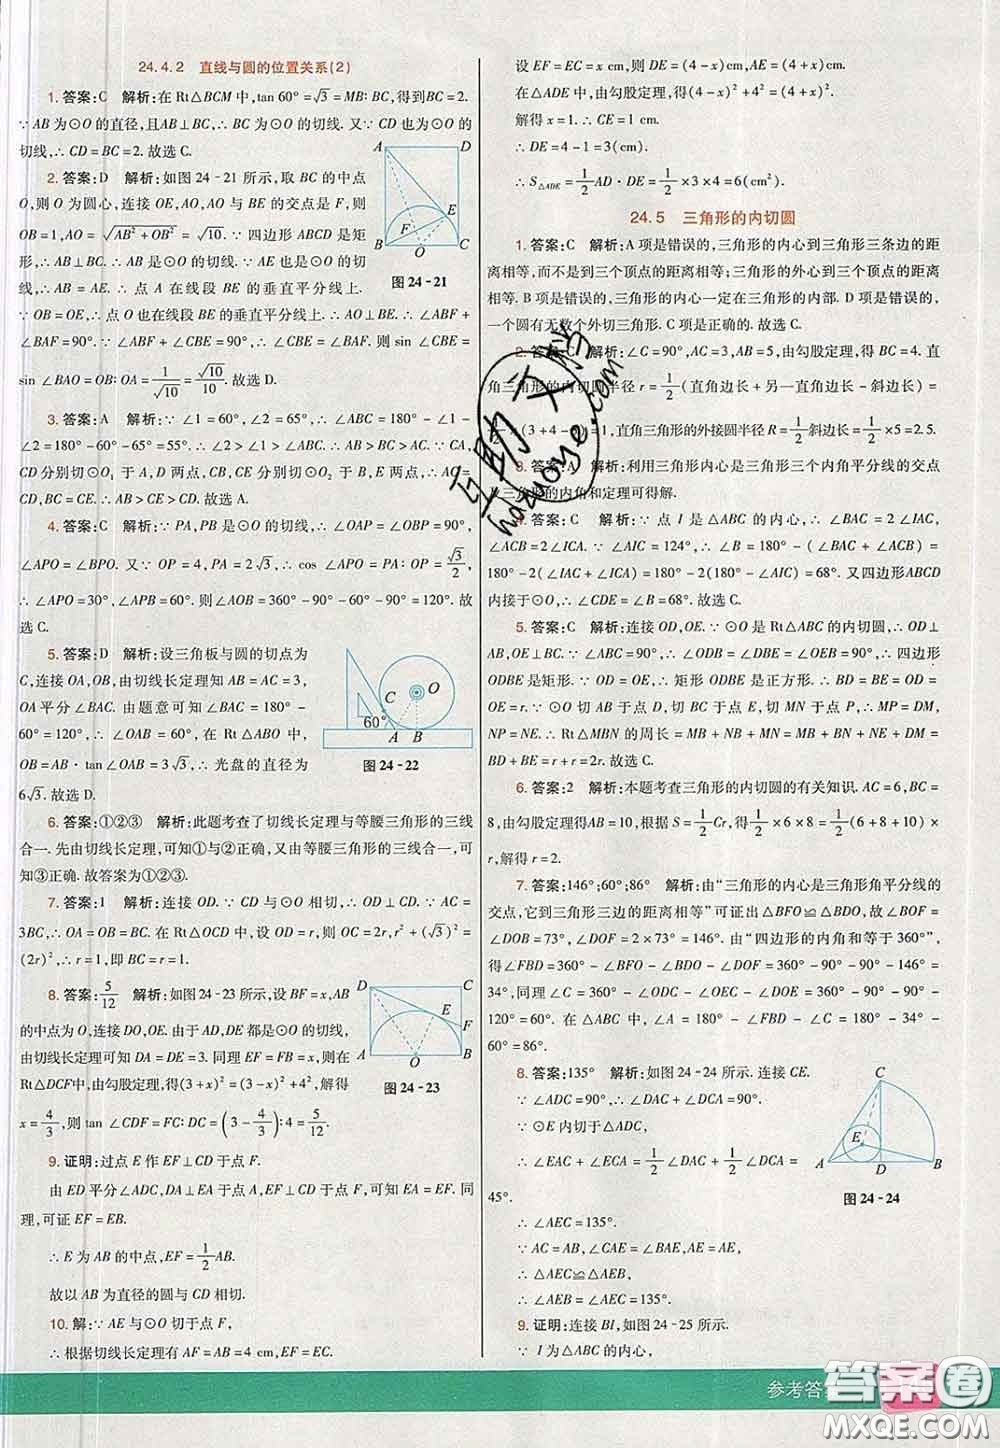 24.4.2 直线与圆的位置关系(2)
1. 答案:C 解析:在 Rt△BCM 中,tan 60°=√3=MB:BC,得到BC=2.
∵ AB 为⊙O 的直径,且AB⊥BC,∴ BC 为⊙O 的切线. 又∵ CD 也为⊙O 的
切线,∴ CD=BC=2. 故选 C.
2. 答案:D 解析:如图 24-21 所示,取 BC 的中点
O,O 为圆心,连接 OE,AO,AO 与 BE 的交点是 F,则
OB=1,AO=√(AB²+OB²)=√10. ∵ 四边形 ABCD 是矩
形,∴
图 24-21
∵ OB=OE,∴ 点 O 也在线段 BE 的垂直平分线上.
∠BAF=90°. ∵ ∠ABF+∠CBE=90°. 则 sin ∠CBE=
sin ∠BAO=OB:OA=1/√10=√10/10. 故选 D.
3. 答案:A 解析:∵ ∠1=60°,∠2=65°,∴ ∠ABC=180°-∠1-
∠2=180°-60°-65°=55°. ∴ ∠2>∠1>∠ABC. ∴ AB>BC>AC. ∵ CA,
CD 分别切⊙O₁ 于 A,D 两点,CB,CE 分别切⊙O₂ 于 B,E 两点,∴ AC=
CD,BC=CE. ∴ AB>CE>CD. 故选 A.
4. 答案:C 解析:∵ PA,PB 是⊙O 的切线,∴ ∠OAP=∠OBP=90°,
∠APO=∠BPO. 又∵ OP=4,PA=2√3,∴ cos ∠APO=PA:OP=√3/2,
∴ ∠APO=30°,∠APB=60°. 则∠AOB=360°-90°-90°-60°=120°. 故
选 C.
5. 答案:D 解析:设三角板与圆的切点为
C,连接 OA,OB,由切线长定理知 AB=AC=3,
OA平分∠BAC. 由题意可知∠BAC=180°-
60°=120°,∴ ∠OAB=60°. 在 Rt△ABO 中,
OB=AB·tan∠OAB=3√3,∴ 光盘的直径为
6√3. 故选 D.
图 24-22
6. 答案:①②③ 解析:此题考查了切线长定理与等腰三角形的三线
合一. 先由切线长定理,可知①与②正确,又由等腰三角形的三线合一,可
知③正确. 故答案为①②③.
7. 答案:1 解析:连接 OD. ∵ CD 与⊙O 相切,∴ OD⊥CD. ∵ AC=
3BC,∴ OC=2OB. 在 Rt△OCD 中,设 OD=r,则 OC=2r,r²+(√3)²=
(2r)²,∴ r=1,即 BC=r=1.
8. 答案:5/12 解析:如图 24-23 所示,设 BF=x,AB
的中点为 O,连接 DO,OE. 由于 AD,DE 都是⊙O 的切线,
由切线长定理可知 DA=DE=3. 同理 EF=FB=x,在
Rt△DCF中,由勾股定理,得(3+x)²=(3-x)²+4²,解得
x=4/3,则 tan ∠CDF=FC:DC=(3-4/3):4=5/12.
图 24-23
9. 证明:过点 E 作 EF⊥CD 于点 F.
由 ED 平分∠ADC,DA⊥EA 于点 A,EF⊥CD 于点 F,可知 EA=EF. 同
理,可证 EF=EB.
∴ E 为 AB 的中点,EF=1/2AB.
故以 AB 为直径的圆与 CD 相切.
10. 解:∵ AE 与⊙O 切于点 F,
∴ 根据切线长定理有 AF=AB=4 cm,EF=EC.
设 EF=EC=x cm,则 DE=(4-x)cm,AE=(4+x)cm.
在△ADE 中,由勾股定理,得(4-x)²+4²=(4+x)².
解得 x=1. ∴ CE=1 cm.
∴ DE=4-1=3(cm).
∴ S△ADE=1/2AD·DE=1/2×3×4=6(cm²).
24.5 三角形的内切圆
1. 答案:C 解析:A 项是错误的,三角形的内心到三角形三条边的距
离相等,而不是到三个顶点的距离相等;三角形的外心到三个顶点的距离
相等. B 项是错误的,三角形的内心一定在三角形的内部. D 项是错误的,
一个圆有无数个外切三角形. C 项是正确的. 故选 C.
2. 答案:C 解析:∠C=90°,AC=3,AB=5,由勾股定理,得 BC=4. 直
角三角形的内切圆半径 r=1/2(直角边长+另一直角边长-斜边长)=
×(3+4- 1,直角三角形的外接圆半径 R=1/2斜边长=1/2×5=2.5.
3. 答案:A 解析:利用三角形内心是三角形三个内角平分线的交点
及三角形的内角和定理可得解.
4. 答案:C 解析:∵ 点 I 是△ABC 的内心,∴ ∠BAC=2∠IAC,
∠ACB=2∠ICA. ∵ ∠AIC=124°,∴ ∠B=180°-(∠BAC+∠ACB)=
180°-2(∠IAC+∠ICA)=180°-2(180°-∠AIC)=68°. 又四边形ABCD
内接于⊙O,∴ ∠CDE=∠B=68°. 故选 C.
5. 答案:C 解析:连接 OD,OE. ∵ ⊙O 是 Rt△ABC 的内切圆,∴ OD⊥
AB,OE⊥BC. 又∵ ∠ODB=∠DBE=∠OEB=90°,∴ 四边形
ODBE 是矩形. ∵ OD=OE,∴ 矩形 ODBE 是正方形. ∴ BD=BE=OD=
OE=r. ∵ ⊙O 切 AB 于点 D,切 BC 于点 E,切 MN 于点 P,∴ MP=DM,
NP=NE. ∴ Rt△MBN 的周长=MB+NB+MN=MB+BN+NE+DM=
BD+BE=r+r=2r. 故选 C.
6. 答案:2 解析:本题考查三角形的内切圆的有关知识. AC=6,BC=
8,由勾股定理得AB=10,根据 S=1/2Cr,得1/2×6×8=1/2(6+8+10)×
r,解得 r=2.
7. 答案:146°;60°;86° 解析:由“三角形的内心是三角形角平分线的
交点,它到三角形三边的距离相等”可证出△BFO≌△BDO,故∠BOF=
∠DOB=73°,∠DOF=2×73°=146°. 由“四边形的内角和等于360°”,
得∠FBD=360°-∠BFO-∠BDO-∠DOF=360°-90°-90°-146°=
34°,同理∠C=360°-90°-90°-120°=60°. 在△ABC 中,∠A=180°-∠FBD-∠C=180°-34°-
60°=86°.
8. 答案:135° 解析:如图 24-24 所示. 连接 CE.
∵ ∠ADC=90°,∴ ∠DAC+∠DCA=90°.
∵ ⊙E 内切于△ADC,
∴ ∠EAC+∠ECA=1/2∠DAC+1/2∠DCA=
45°.
图 24-24
∴ ∠AEC=135°.
∵ AC=AB,∠CAE=∠BAE,AE=AE,
∴ △AEC≌△AEB,
∴ ∠AEB=∠AEC=135°.
9. 证明:连接 BI,如图 24-25 所示.
∵ I为△ABC 的内心,
参考答案
答案圈
MXQE.COM
互助文档
hdzuoye.com